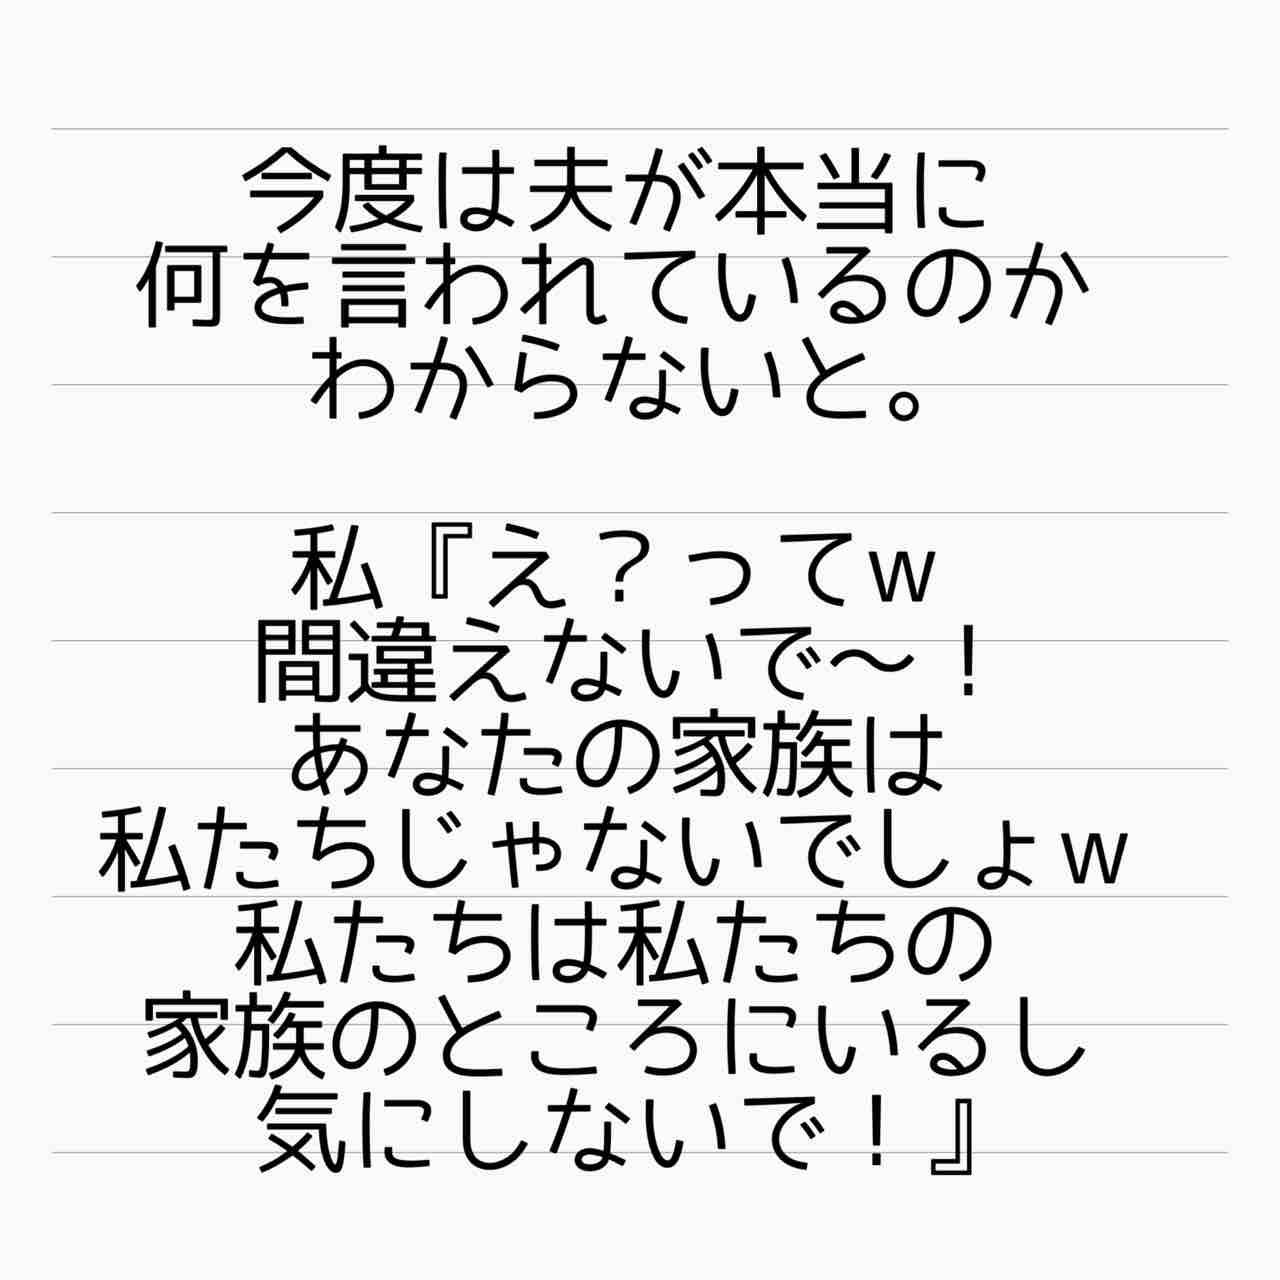 今度は夫が本当に
何を言われているのか
わからないと。
私『え？ってw
間違えないで〜！
あなたの家族は
私たちじゃないでしょw
私たちは私たちの
家族のところにいるし
気にしないで！』